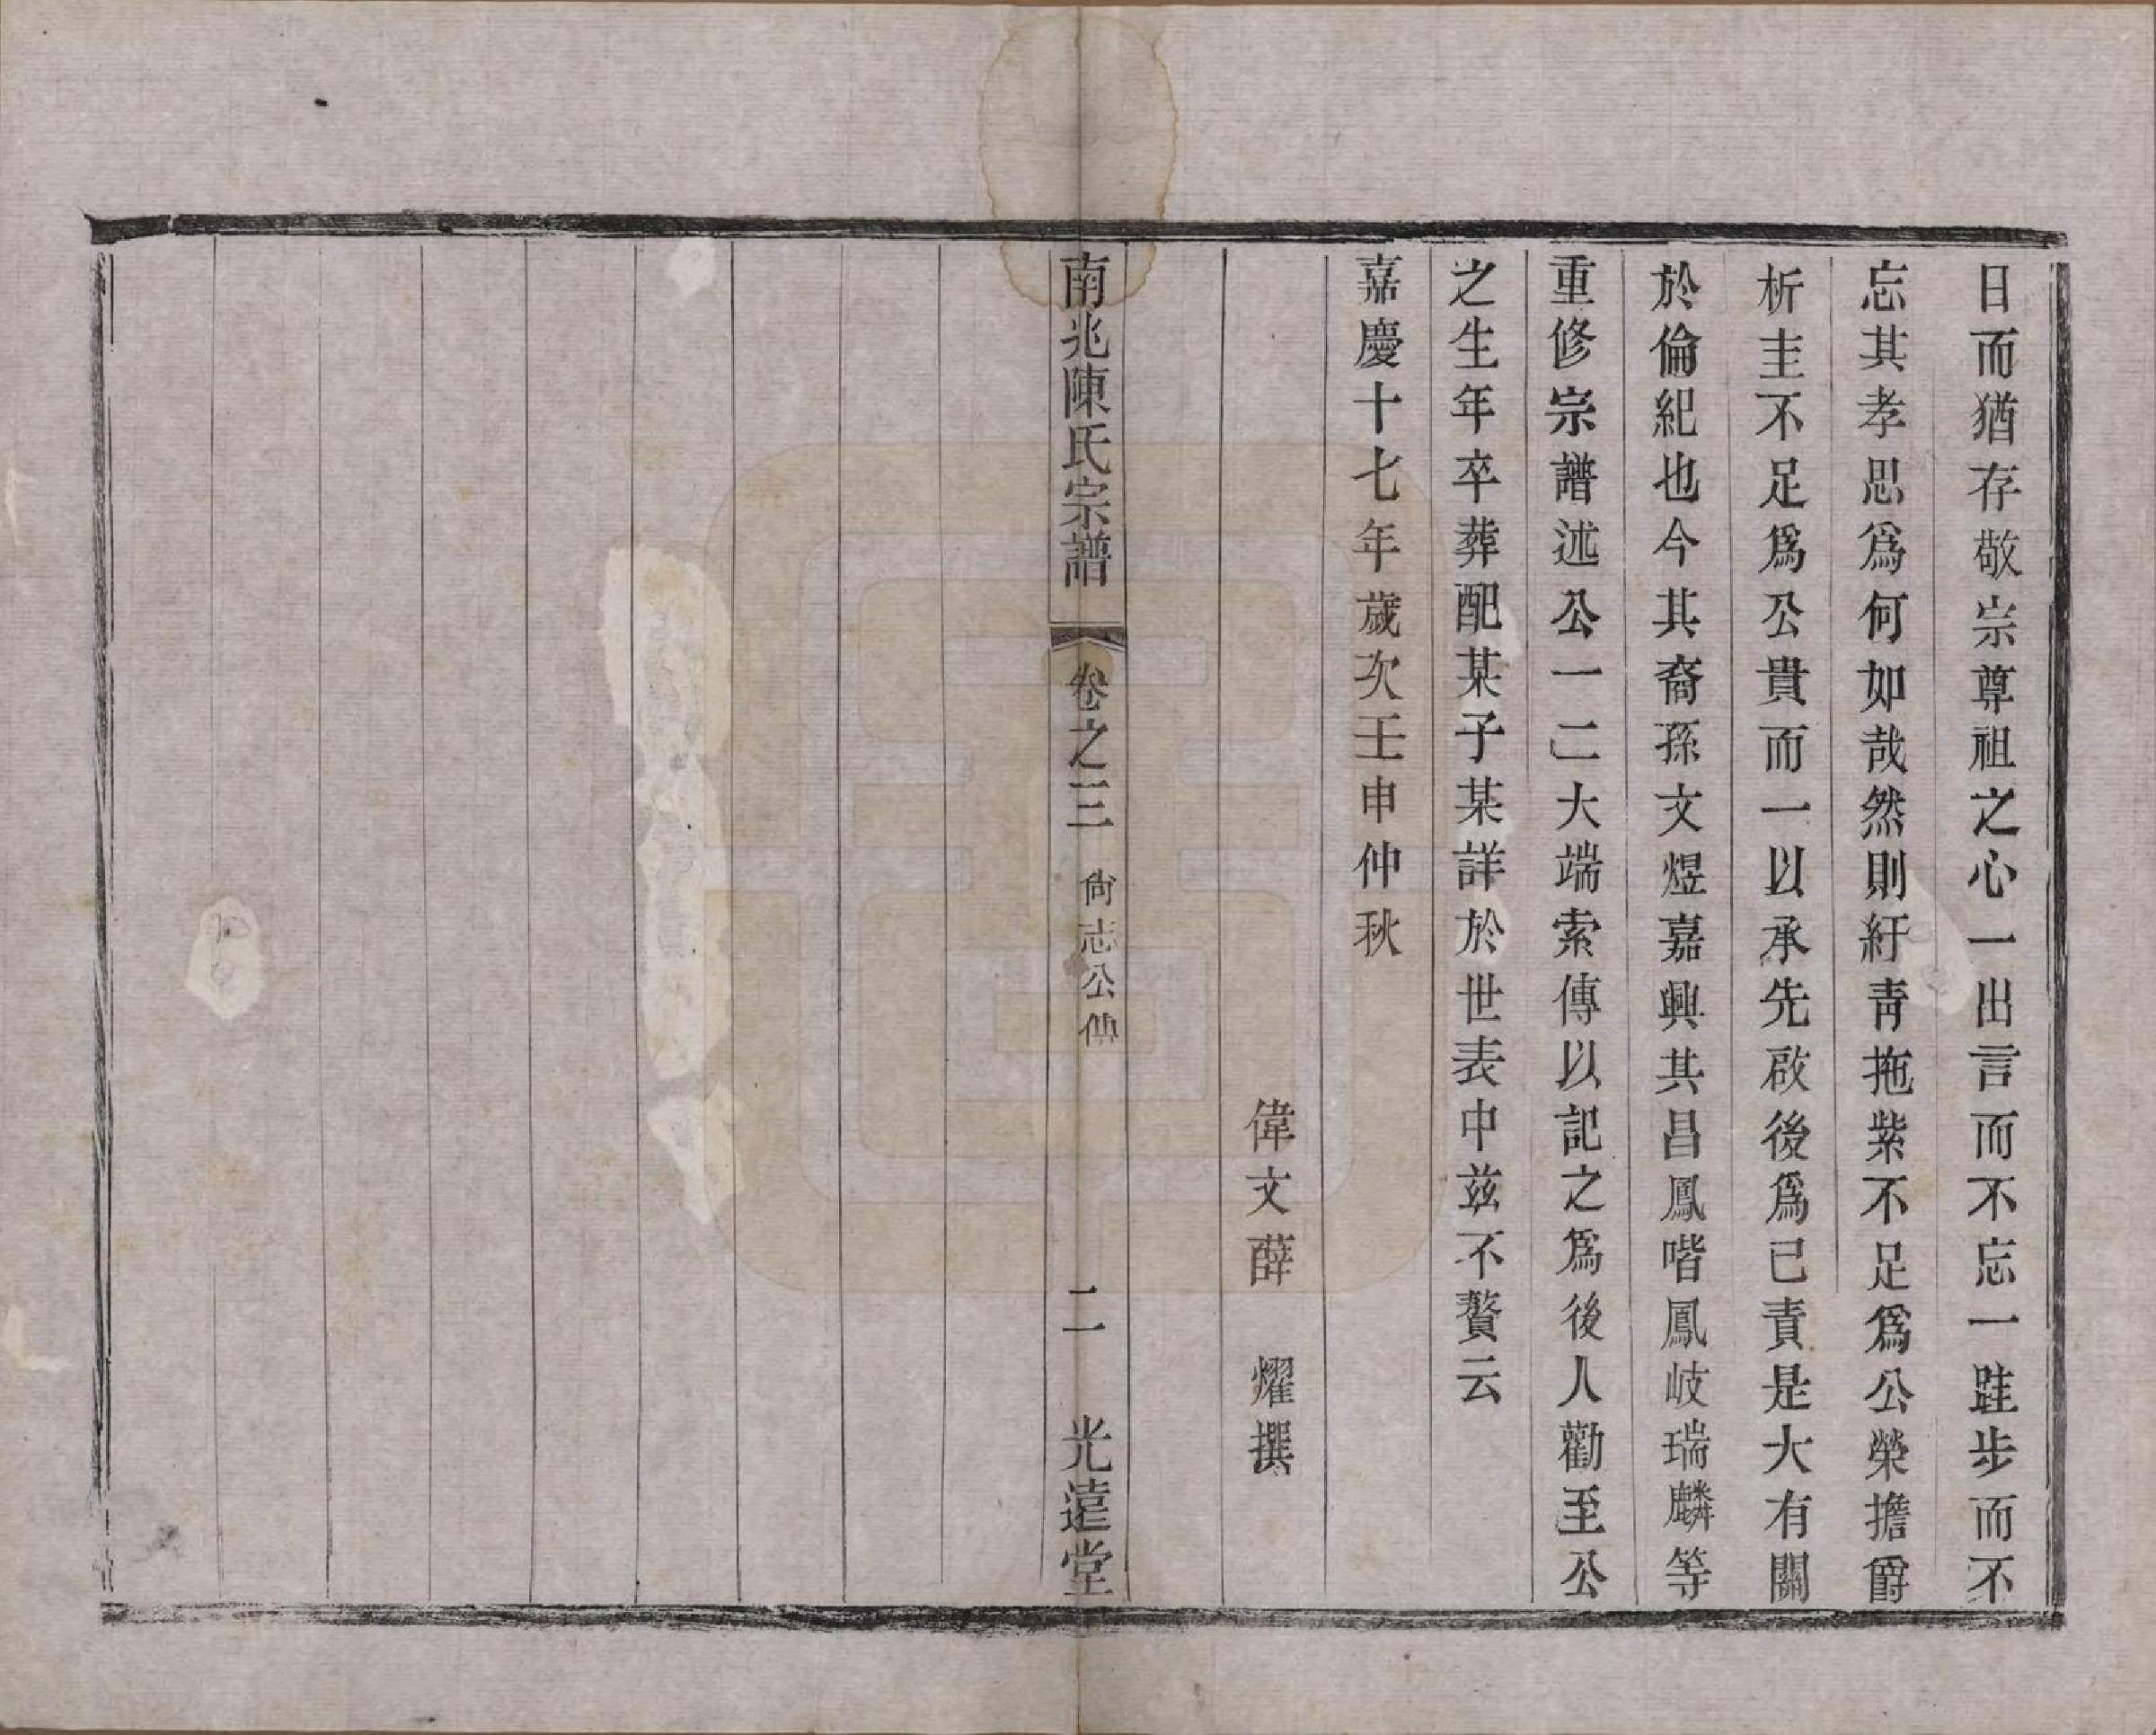 日而猶存敬宗尊祖之心一出言而不忘一跬步而不
忘其孝思爲何如哉然則紆靑拖紫不足爲公榮擔爵
析圭不足爲公貴而一以承先啟後爲己責是大有關
於倫紀也今其裔孫文煜嘉興其昌鳳喈鳳岐瑞麟等
重修宗譜述公一二大端索傳以記之爲後人勸至公
之生年卒葬配某子某詳於世表中兹不贅云
嘉慶十七年歲次壬申仲秋
偉文薛　燿撰
南兆陳氏宗譜　卷之三　尙志公傳　二　光遠堂